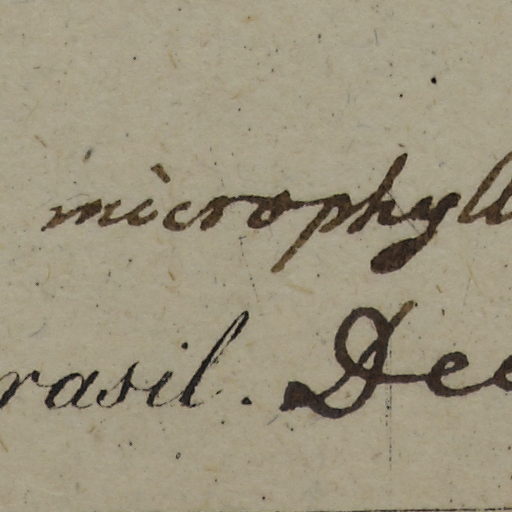 microphyll
rasil. Dec